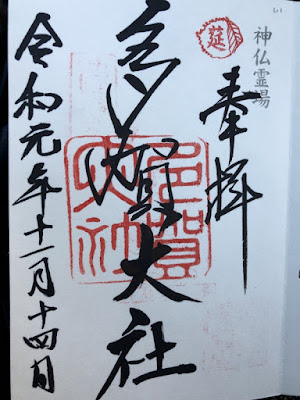 神仏霊場
莚
奉拝
多賀大社
多賀
大社
令和元年十一月十四日